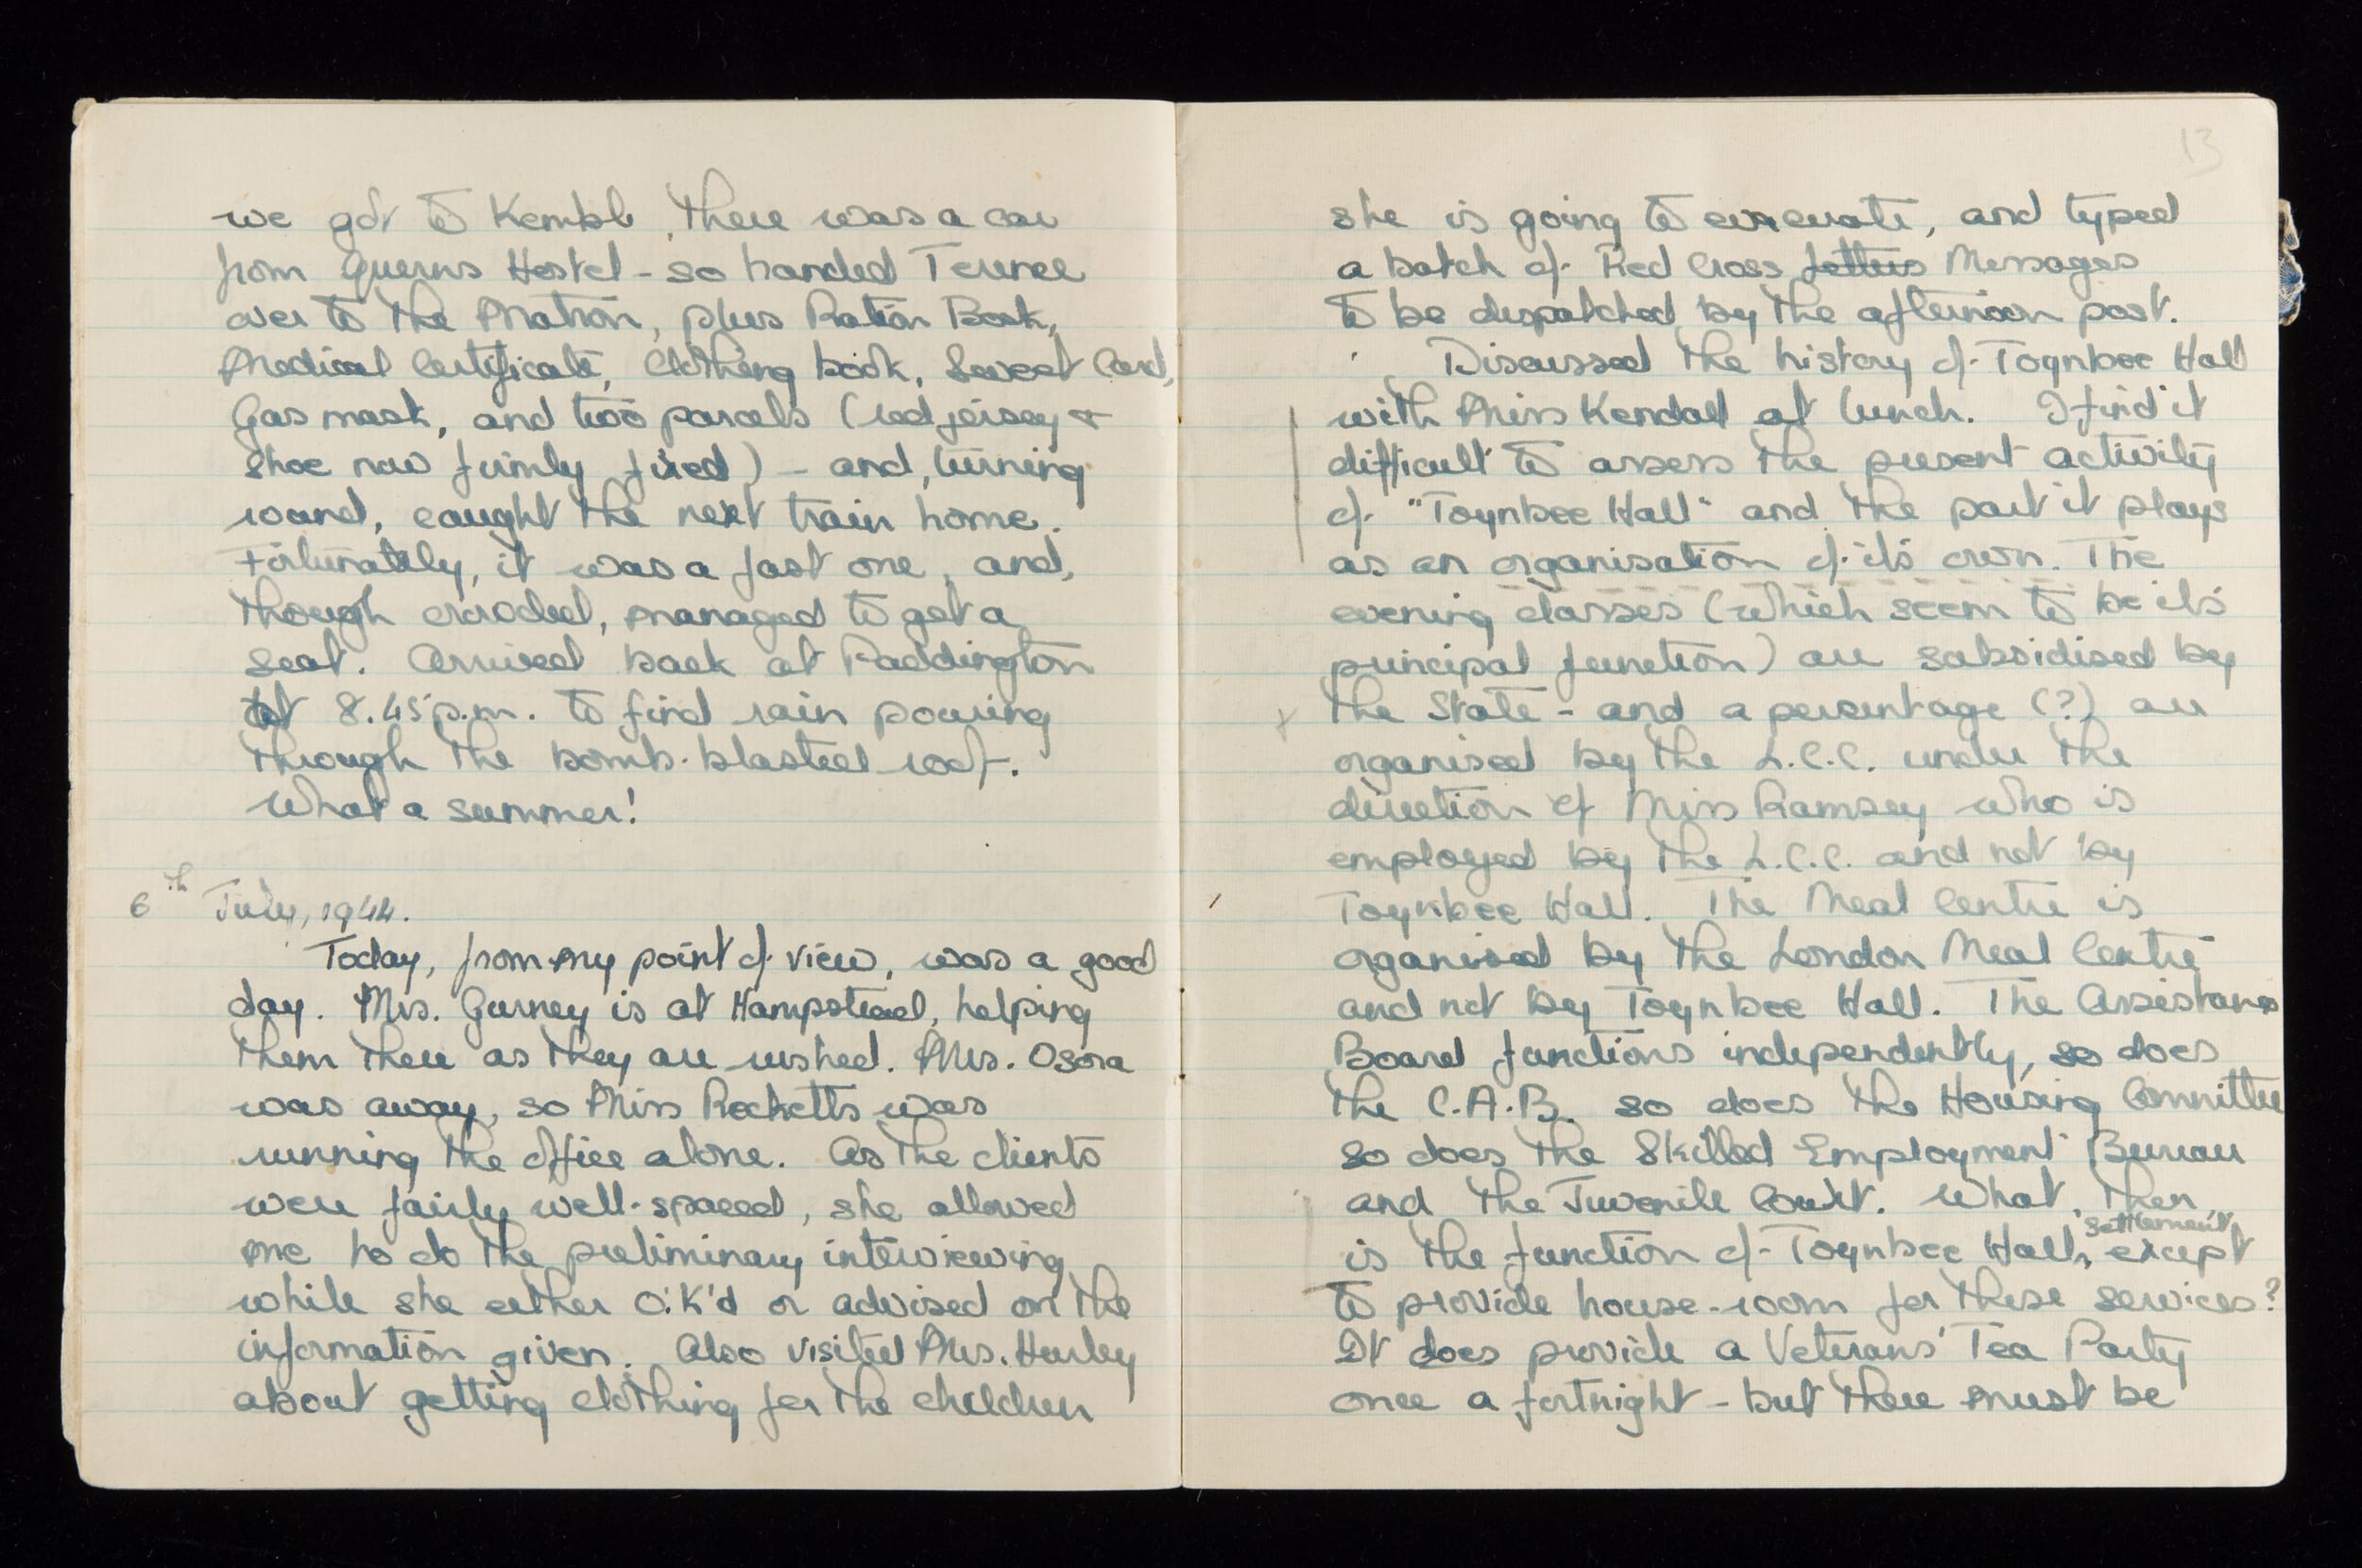 we got to Kemble, there was a car
from Querns Hostel - so handed Terence
over to the Matron, plus Ration Book,
Medical Certificate, Clothing book, Sweet Card,
Gas mask, and two parcels (red jersey &
shoe now firmly fixed) - and, turning
round, caught the next train home.
Fortunately, it was a fast one, and,
though crowded, managed to get a
seat. Arrived back at Paddington
at 8.45 p.m. to find rain pouring
through the bomb-blasted roof.
What a summer!
6th July, 1944.
Today, from my point of view, was a good
day. Mrs. Gurney is at Hampstead, helping
them there as they are rushed. Mrs. Osora
was away, so Miss Rocketts was
running the office alone. As the clients
were fairly well-spaced, she allowed
me to do the preliminary interviewing
while she either O.K'd or advised on the
information given. Also visited Mrs. Hurley
about getting clothing for the children
13
she is going to evacuate, and typed
a batch of Red Cross letters Messages
to be despatched by the afternoon post.
Discussed the history of Toynbee Hall
with Miss Kendall at lunch. I find it
difficult to assess the present activity
of "Toynbee Hall" and the part it plays
as an organisation of it's own. The
evening classes (which seem to be it's
principal function) are subsidised by
the State - and a percentage (?) are
organised by the L.C.C. under the
direction of Miss Ramsey who is
employed by the L.C.C. and not by
Toynbee Hall. The Meal Centre is
organised by the London Meal Centre
and not by Toynbee Hall. The Assistance
Board functions independently, so does
the C.A.B. so does the Housing Committee
so does the Skilled Employment Bureau
and the Juvenile Court. What, then
is the function of Toynbee Hall, settlement except
to provide house-room for these services?
It does provide a Veterans' Tea Party
once a fortnight - but there must be